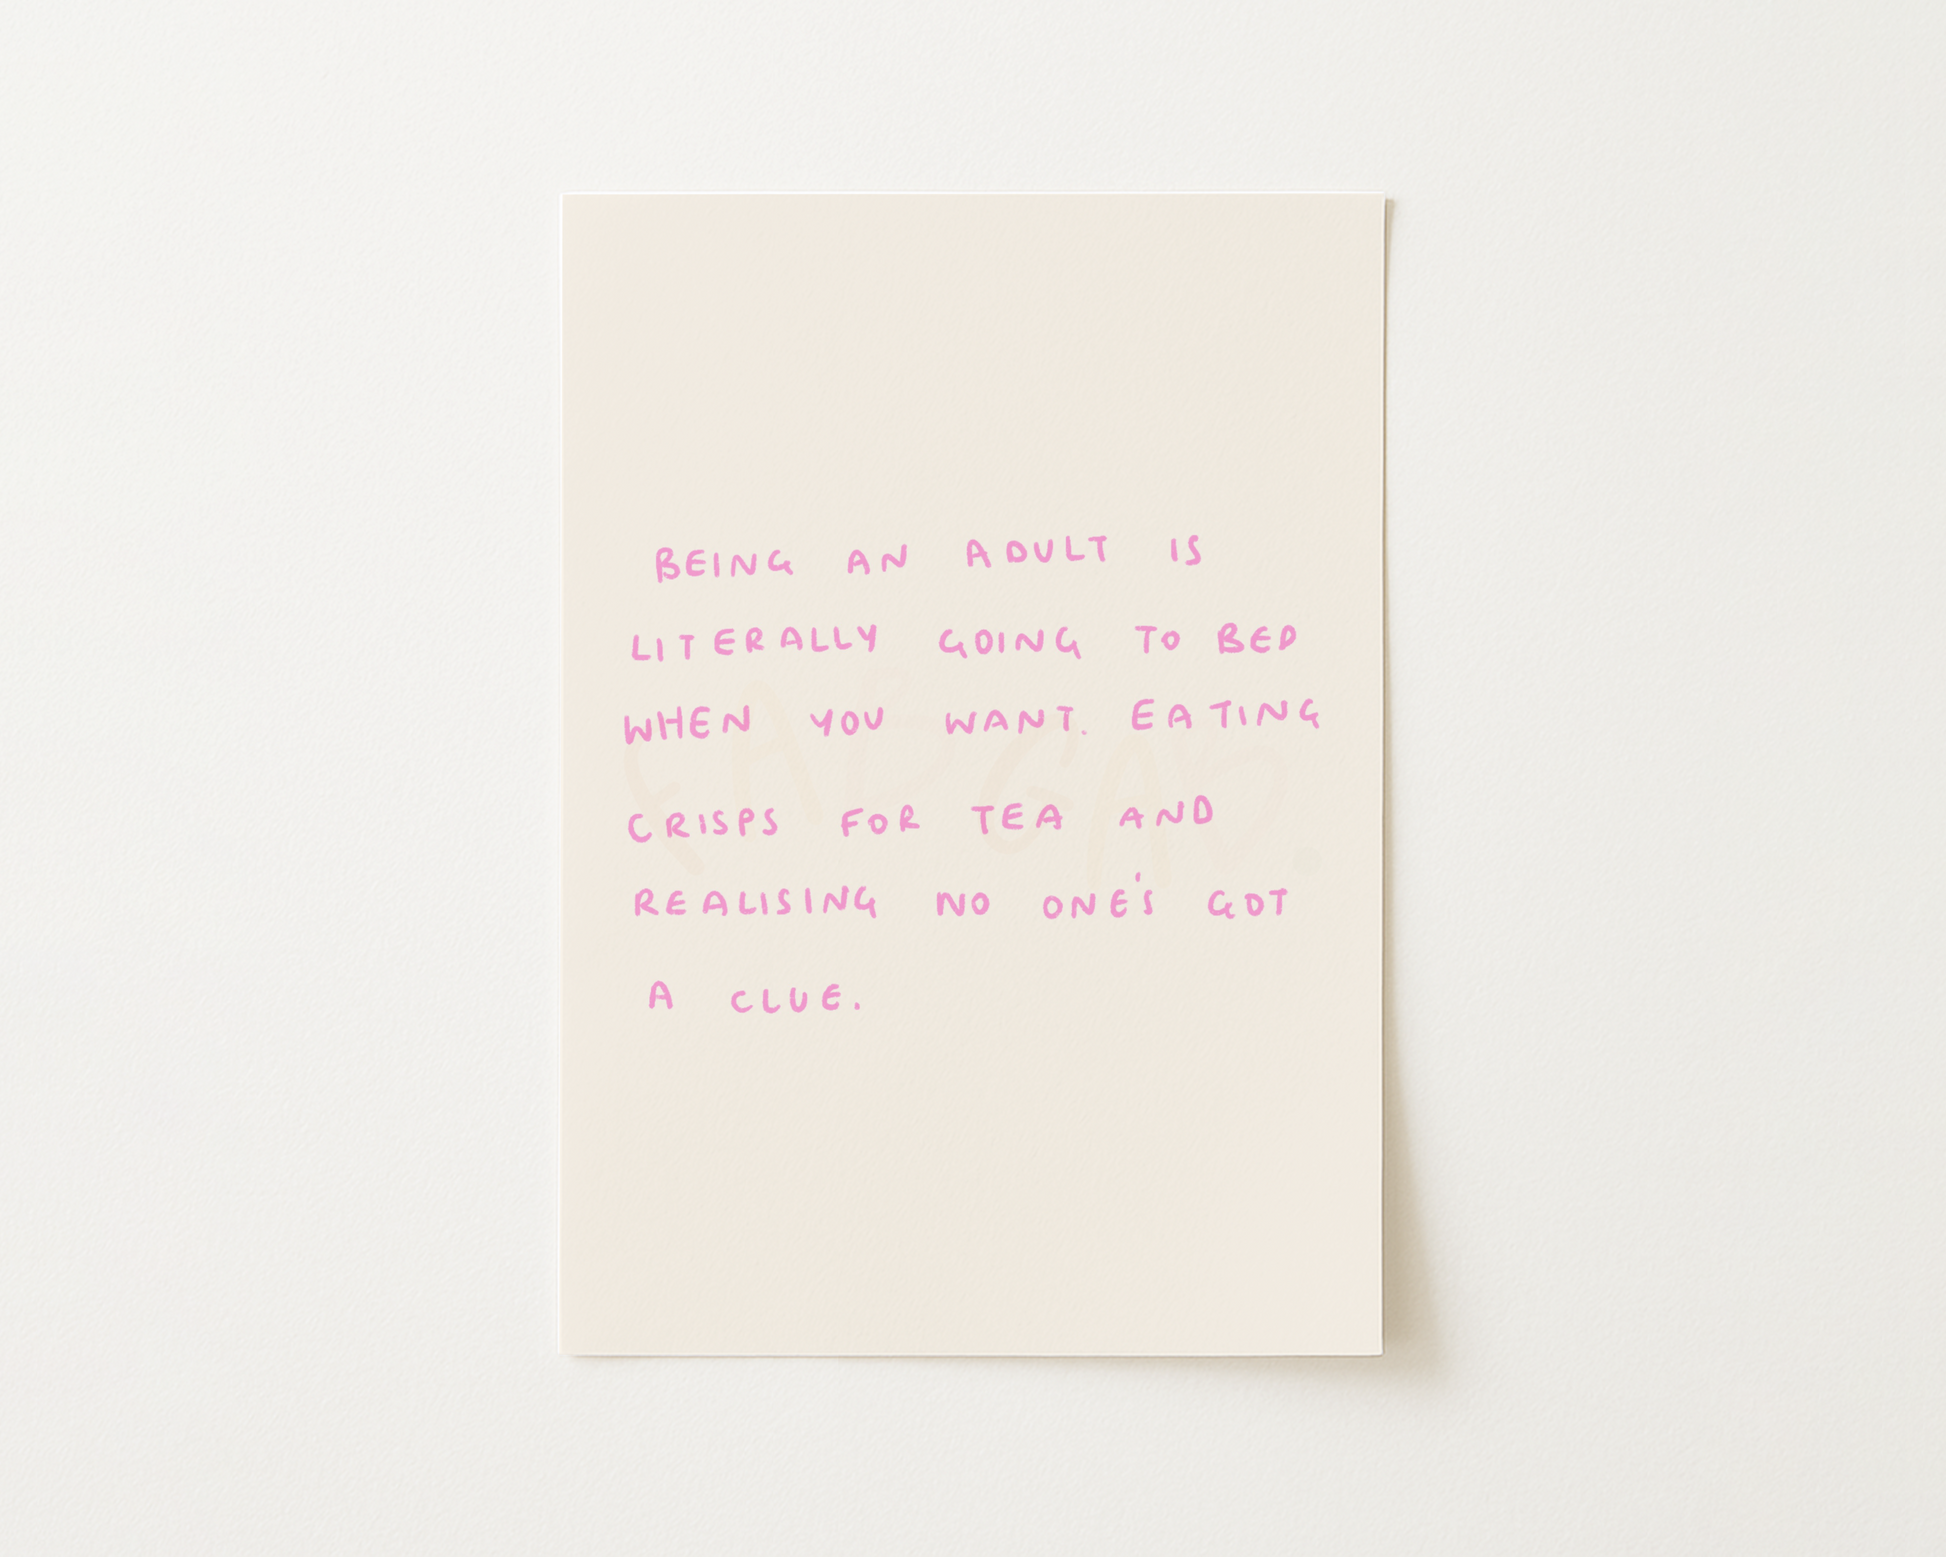 BEING AN ADULT IS
LITERALLY GOING TO BED
WHEN YOU WANT. EATING
CRISPS FOR TEA AND
REALISING NO ONE'S GOT
A CLUE.